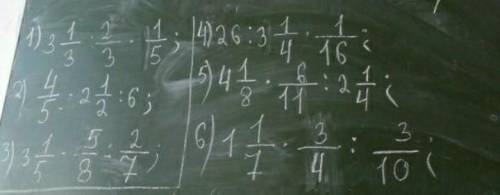 1) 3 1/3 : 2/3 · 1/5 ;
2) 4/5 : 2 1/2 : 6 ;
3) 3 1/5 · 5/8 : 2/7 ;
4) 26 : 3 1/4 · 1/16 ;
5) 4 1/8 · 6/11 : 2 1/4 ;
6) 1 1/7 · 3/4 : 3/10 ;